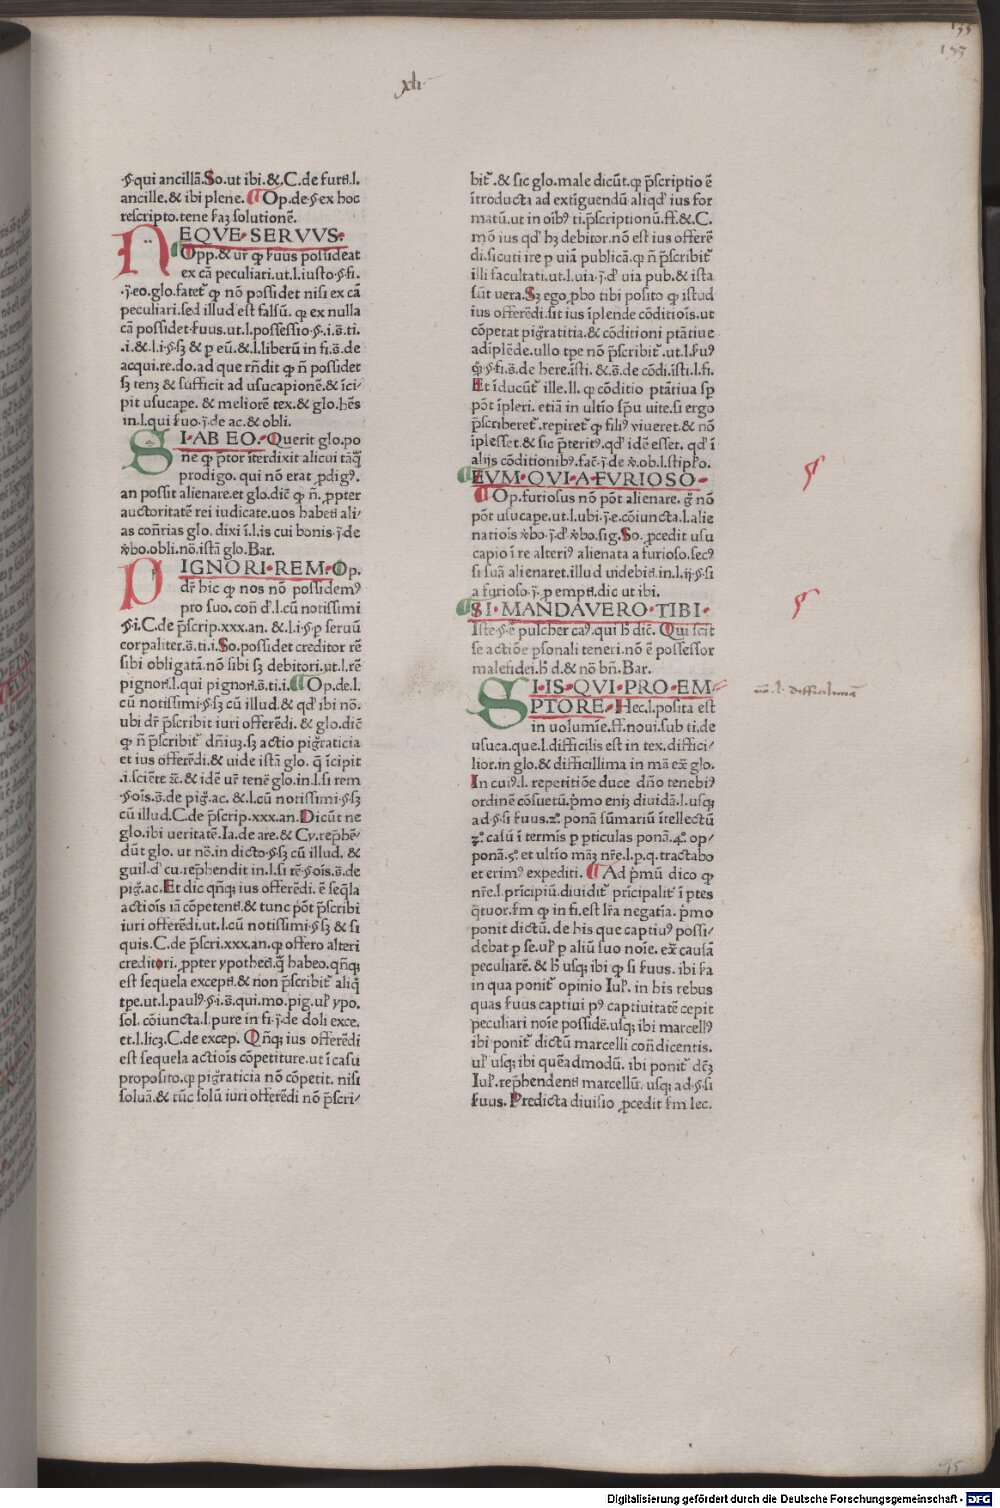 xli
·§·qui ancillã.So.ut ibi.&.C.de furti.l.
ancille.& ibi plene. Op.de.§.ex hoc
rescripto.tene fa&ꝫ solutionẽ.
NEQVE·SERVVS·
Opp.& ur̃ ꝙ seruus possideat
ex cã peculiari.ut.l.iusto.§.fi.
.j.eo.glo.fatet᷑ ꝙ nõ possidet nisi ex cã
peculiari.sed illud est falsũ. ꝙ ex nulla
cã possidet seruus.ut.l.possessio.§.i.s̃.ti.
.i.& l.i.§.sꝫ & p eũ.& l.liberũ in fi.s̃.de
acqui.re.do.ad que rñdit ꝙ ñ possidet
sꝫ tenꝫ & sufficit ad usucapionẽ.& ĩci/
pit usucape. & meliorẽ tex.& glo.hẽs
in.l.qui seruo.j̃.de ac.& obli.
SI·AB EO.·Querit glo.po
ne ꝙ p̃tor ĩterdixit alicui tãꝗ̃
prodigo. qui nõ erat ꝓdigꝰ.
an possit alienare.et glo.dic̃ ꝙ ñ. ꝓpter
auctoritatẽ rei iudicate.uos habetis ali/
as coñrias glo. dixi ĩ.l.is cui bonis.j̃.de
v̾bo.obli.nõ.istã glo.Bar.
PIGNORI·REM·Op.
dr̃ hic ꝙ nos nõ possidemꝰ
pro suo.coñ d̾.l.cũ notissimi
§.i.C.de p̃scrip.xxx.an. & l.i.§.p seruũ
corpaliter.s̃.ti.i.So.possidet creditor rẽ
sibi obligatã.nõ sibi sꝫ debitori.ut.l.rẽ
pignoris.l.qui pignoris.s̃.ti.i. Op.de.l.
cũ notissimi.§.sꝫ cũ illud.& qd᷑ ibi nõ.
ubi dr̃ p̃scribit iuri offerẽdi. & glo.dic̃
ꝙ ñ p̃scribit᷑ dñiuꝫ.sꝫ actio pigr̃aticia
et ius offerẽdi.& uide istã glo. q̃ ĩcipit
.i.sciẽte &c̃.& idẽ ur̃ tenẽ glo.in.l.si rem
.§.oĩs.s̃.de pig̃.ac. & l.cũ notissimi.§.sꝫ
cũ illud.C.de p̃scrip.xxx.an.Dicũt ne
glo.ibi ueritatẽ.Ia.de are.& Cy.rep̃hẽ/
dũt glo. ut nõ.in dicto.§.sꝫ cũ illud. &
guil.d̾ cu.rep̃hendit in.l.si rẽ.§.oĩs.s̃.de
pig̃.ac.Et dic qñqꝫ ius offerẽdi. ẽ seq̃la
actiõis iã cõpetentis.& tunc põt p̃scribi
iuri offerẽdi.ut.l.cũ notissimi.§.sꝫ & si
quis.C.de p̃scri.xxx.an.ꝙ offero alteri
creditori. ꝓpter ypothecã.q̃ habeo.qñqꝫ
est sequela exceptis.& non p̃scribit᷑ aliq̃
tpe.ut.l.paulꝰ.§.i.s̃.qui.mo.pig.ul̾ ypo.
sol. cõiuncta.l.pure in fi.j̃.de doli exce.
et.l.licꝫ.C.de excep. Qñqꝫ ius offerẽdi
est sequela actiõis cõpetiture.ut ĩ casu
proposito.ꝙ pigr̃aticia nõ cõpetit. nisi
soluã.& tũc solũ iuri offerẽdi nõ p̃scri/
bit᷑.& sic glo.male dicũt.ꝙ p̃scriptio ẽ
ĩtroducta ad extiguendũ aliqd᷑ ius for
matũ.ut in oĩbꝰ ti.p̃scriptionũ.ff.& C.
mõ ius qd᷑ hꝫ debitor.nõ est ius offerẽ
di.sicuti ire p uiã publicã.ꝙ ñ p̃scribit᷑
illi facultati.ut.l.uia.j̃.d᷑ uia pub.& ista
sũt uera.Sꝫ ego.ꝓbo tibi posito ꝙ istud
ius offerẽdi.sit ius ĩplende cõditiõis.ut
cõpetat pigr̃atitia.& cõditioni ptãtiue
adĩplẽde.ullo tpe nõ p̃scribit᷑.ut.l.seruꝰ
.§.fi.s̃.de here.isti. & s̃.de cõdi.isti.l.fi.
Et ĩducũt᷑ ille.ll. ꝙ cõditio ptãtiua sp̃
põt ĩpleri. etiã in ultio sp̃u uite.si ergo
p̃scriberet᷑.repiret᷑ ꝙ filiꝰ uiueret.& nõ
ĩplesset.& sic p̃teritꝰ.qd᷑ idẽ esset. qd᷑ ĩ
alijs cõditionibꝰ.fac̃.j̃ de v̾.ob.l.stipl̾o.
EVM·QVI·A·FVRIOSO·
Op.furiosus nõ põt alienare. g̃ nõ
põt usucape.ut.l.ubi.j̃.e.cõiuncta.l.alie
natiõis v̾bo.j̃.d᷑ v̾bo.sig.So. ꝓcedit usu
capio ĩ re alteriꝰ alienata a furioso.secꝰ
si suã alienaret.illud uidebitis.in.l.ij.§.si
a furioso.j̃.p emptis.dic ut ibi.
SI·MANDAVERO·TIBI·
Iste.§.ẽ pulcher caꝰ.qui h̾ dic̃. Qui scit
se actiõe p̃sonali teneri.nõ ẽ possessor
malefidei.h̾ d.& nõ bñ.Bar.
SI·IS·QVI·PRO·EM
PTORE·Hec.l.posita est
in uolumĩe.ff.noui.sub ti.de
usuca.que.l.difficilis est in tex.diffici/
lior.in glo.& difficillima in mã ex̃ glo.
In cuiꝰ.l. repetitiõe duce dño tenebiꝰ
ordinẽ cõsuetũ.p̃mo enĩꝫ diuidã.l.usqꝫ
ad.§.si seruus.2º. ponã sũmariũ ĩtellectũ
3º. casũ ĩ termis p pticulas ponã.4º. op/
ponã.5º. et ultio mãꝫ nr̃e.l.p.q.tractabo
et erimꝰ expediti. Ad p̃mũ dico ꝙ
nr̃e.l.prĩcipiũ.diuidit᷑ prĩcipalit᷑ ĩ ptes
q̃tuor.sm̃ ꝙ in fi.est lr̃a negatĩa. p̃mo
ponit dictũ. de his que captiuꝰ possi/
debat p se.ul̾ p aliũ suo noĩe. ex̃ causã
peculiarẽ. & h̾ usqꝫ ibi ꝙ si seruus. ibi sa
in qua ponit᷑ opinio Iul̾. in his rebus
quas seruus captiui pꝰ captiuitatẽ cepit
peculiari noĩe possidẽ.usqꝫ ibi marcellꝰ
ibi ponit᷑ dictũ marcelli coñdicentis.
ul̾ usqꝫ ibi queãdmodũ. ibi ponit᷑ dẽꝫ
Iul̾.rep̃hendentis marcellũ.usqꝫ ad.§.si
seruus. Predicta diuisio ꝓcedit sm̃ lec.
Digitalisierung gefördert durch die Deutsche Forschungsgemeinschaft - DFG